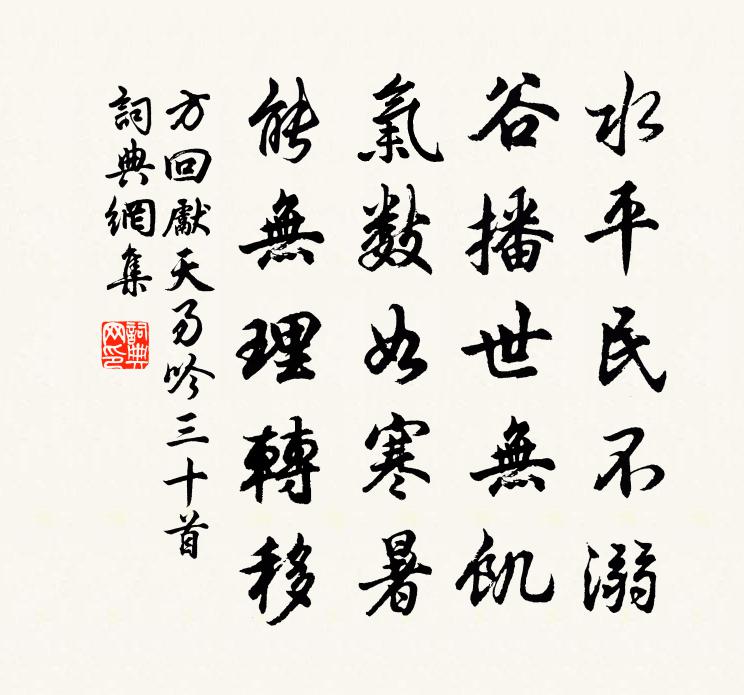 水平民不溺
谷播世無飢
氣數如寒暑
能無理轉移
方回獻天易吟三十首
詞典網集
詞典
网印